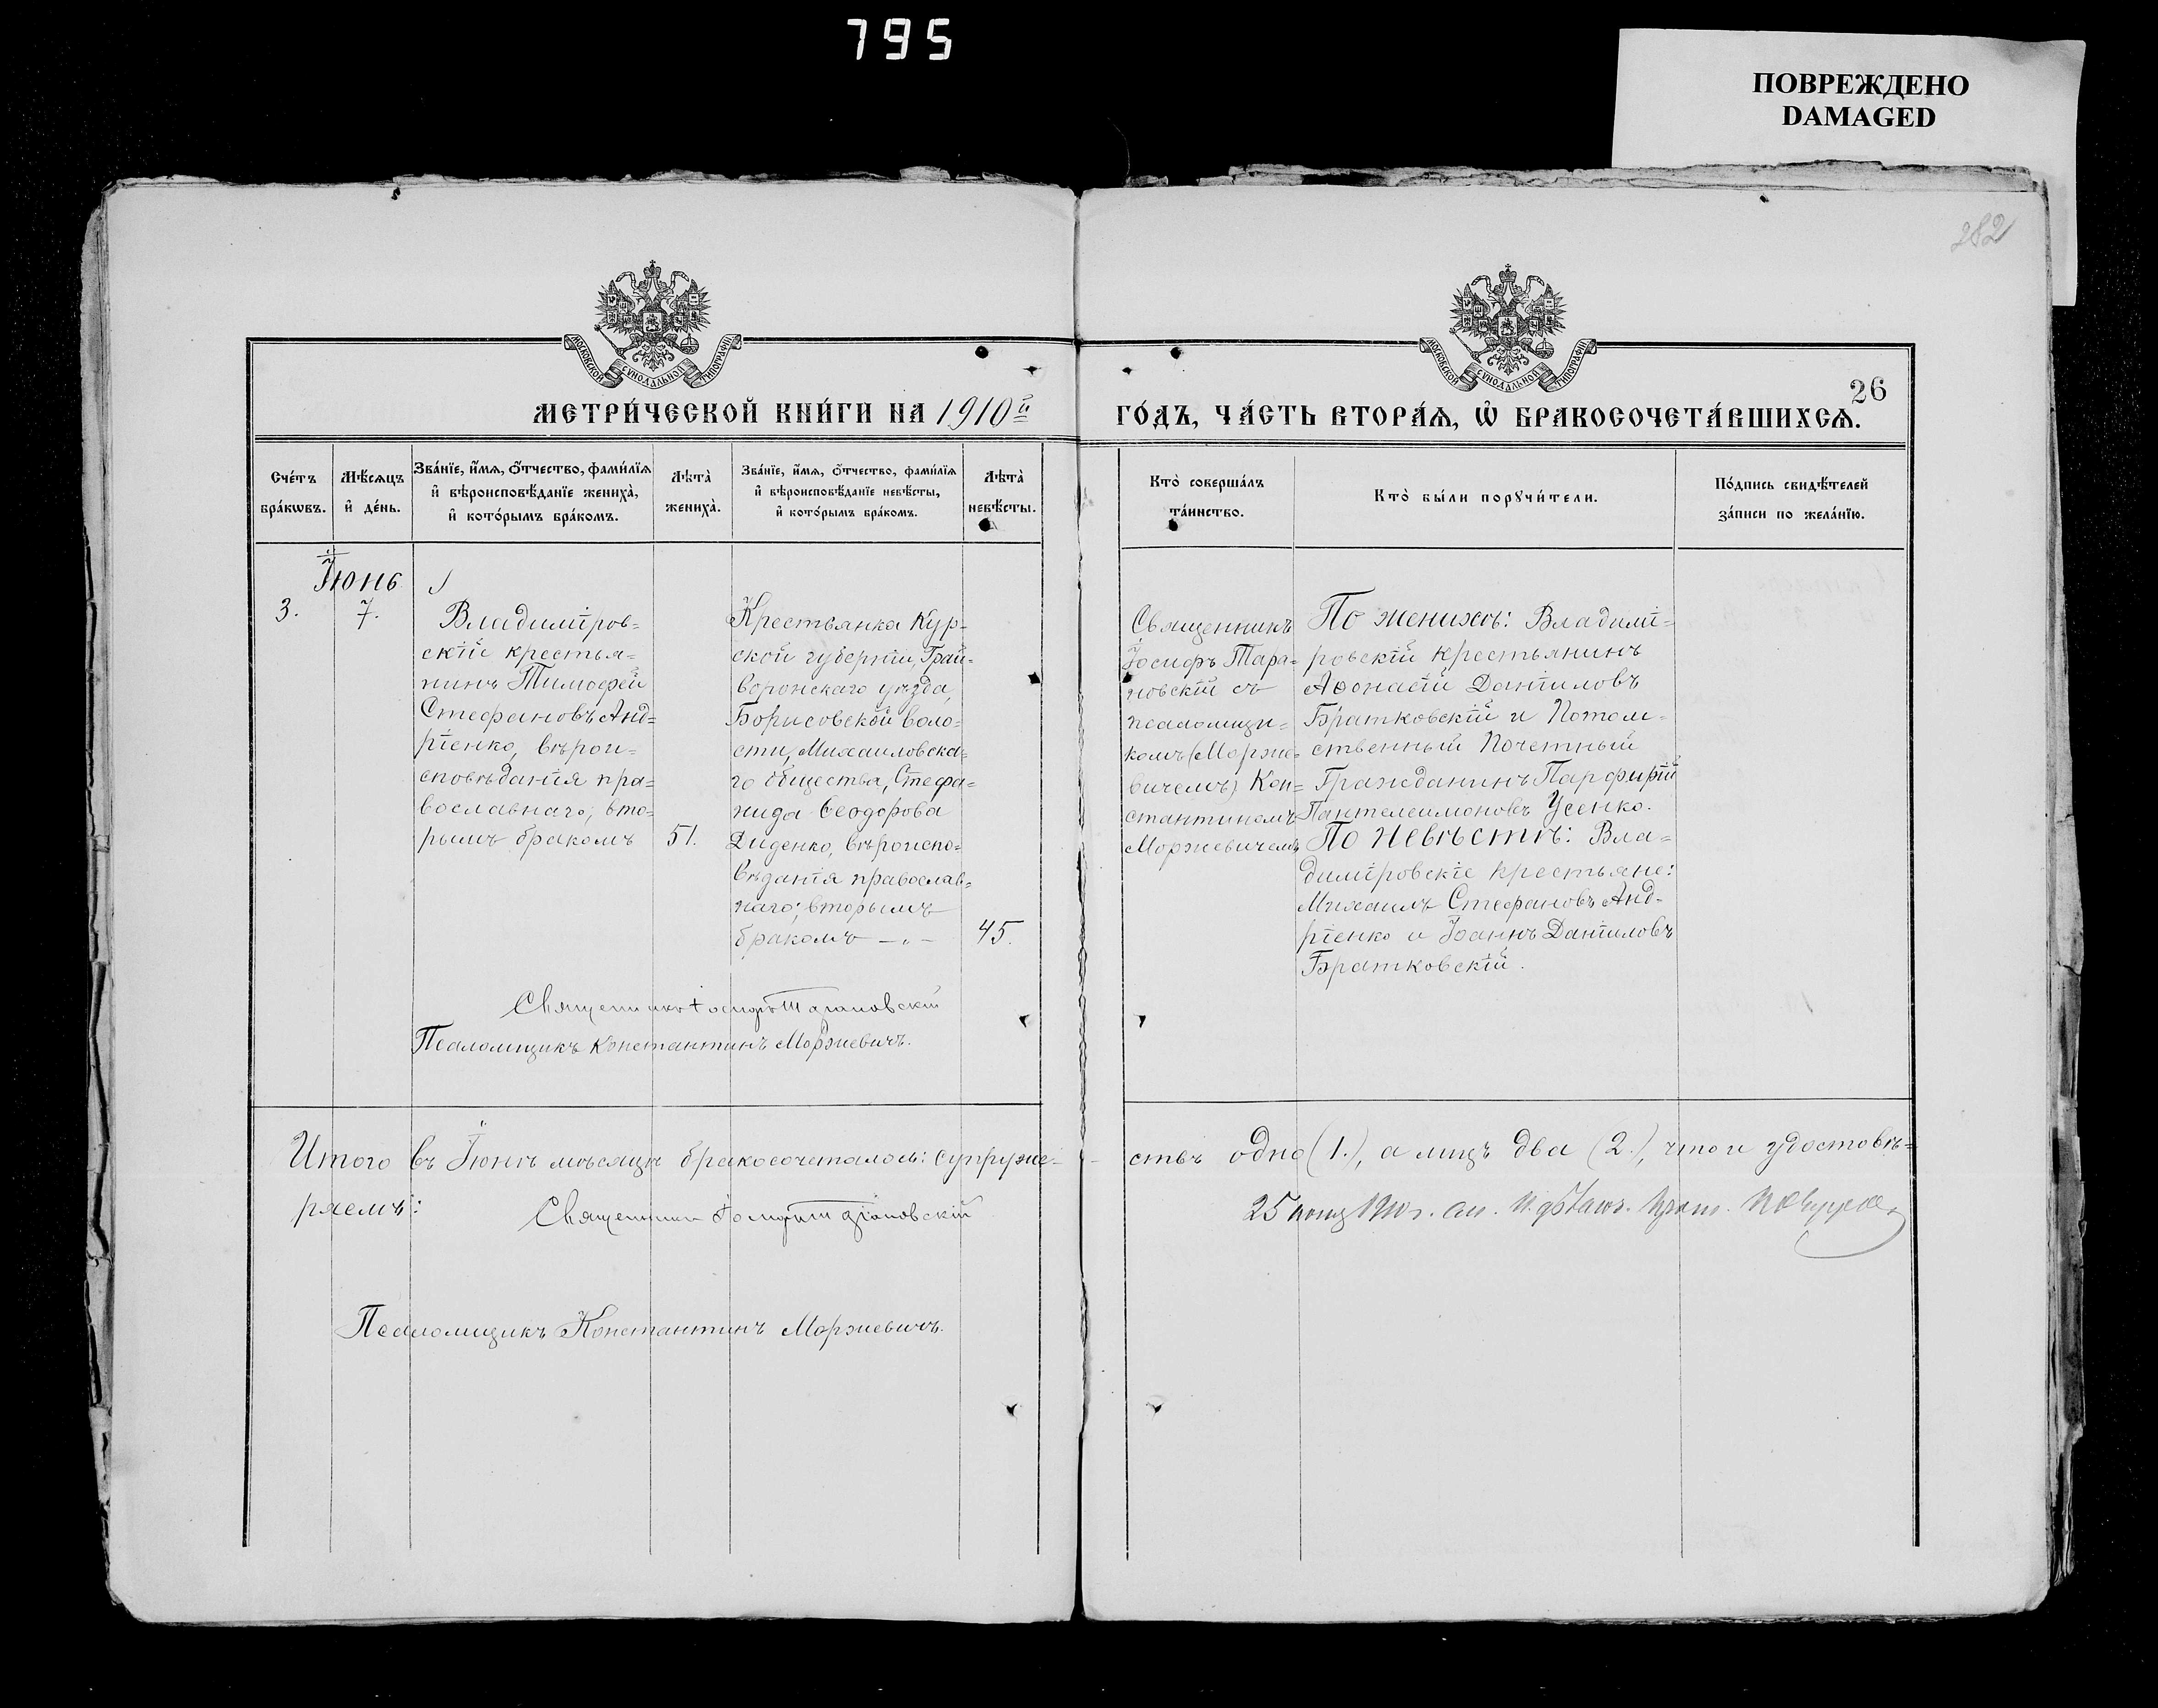 795
ПОВРЕЖДЕНО
DAMAGED
282
МОСКОВСКОЙ СѴНОДАЛЬНОЙ ТИПОГРАФІИ
МОСКОВСКОЙ СѴНОДАЛЬНОЙ ТИПОГРАФІИ
26
МЕТРИ́ЧЕСКОЙ КНИ́ГИ НА 1910й
ГО́ДЪ, ЧА́СТЬ ВТОРА́Я, Ѽ БРАКОСОЧЕТА́ВШИХСѦ.
Сче́тъ
бра́кѡвъ.
Мѣ́сяцъ
и҆ де́нь.
Зва́нїе, и҆́мѧ, ѻ҆́тчество, фами́лїѧ
и҆ вѣроисповѣ́данїе жениха̀,
и҆ кото́рымъ бра́комъ.
Лѣта̀
жениха̀.
Зва́нїе, и҆́мѧ, ѻ҆́тчество, фами́лїѧ
и҆ вѣроисповѣ́данїе невѣ́сты,
и҆ кото́рымъ бра́комъ.
Лѣта̀
невѣ́сты.
Кто̀ соверша́лъ
та́инство.
Кто̀ бы́ли порꙋчи́тели.
По́дпись свидѣ́телей
за́писи по жела́нїю.
Іюнь
3.
7.
Владиміров=
скій крестья=
нинъ Тимофей
Стефановъ Анд=
ріенко, вѣрои=
сповѣданія пра=
вославнаго, вто=
рымъ бракомъ
51.
Крестьянка Кур=
ской губерніи, Грай=
воронскаго уѣзда,
Борисовской воло=
сти, Михаиловска=
го общества, Стефа=
нида Ѳеодорова
Диденко, вѣроиспо=
вѣданія православ=
наго; вторымъ
бракомъ — „ —
45.
Священникъ
Іосифъ Тара=
новскій съ
псаломщи=
комъ (Моржие=
вичемъ) Кон=
стантиномъ
Моржиевичемъ
По женихѣ: Владимі=
ровскій крестьянинъ
Аѳонасій Даніиловъ
Братковскій и Потом=
ственный Почетный
Гражданинъ Парфирій
Пантелеимоновъ Усенко.
По невѣстѣ: Вла=
диміровскіе крестьяне:
Михаилъ Стефановъ Анд=
ріенко и Іоаннъ Даніиловъ
Братковскій.
Священникъ Іосифъ Тарановскій
Псаломщикъ Константинъ Моржиевичъ.
Итого въ Іюнѣ мѣсяцѣ бракосочеталось: супруже=
ствъ одно (1.), а лицъ два (2.), что и удостовѣ=
ряемъ:
Священникъ Іосифъ Тарановскій
25 1910 г.
Псаломщикъ Константинъ Моржиевичъ.